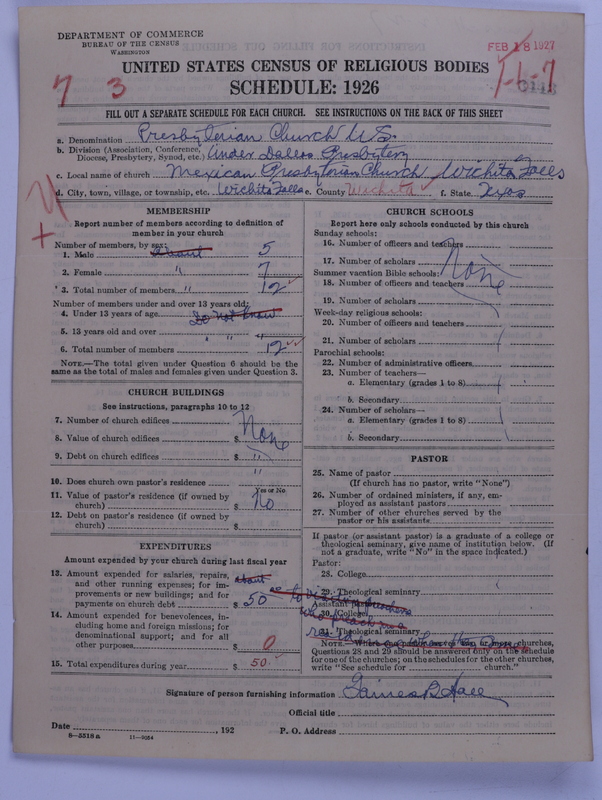 DEPARTMENT OF COMMERCE
BUREAU OF THE CENSUS
WASHINGTON
FEB 18 1927
UNITED STATES CENSUS OF RELIGIOUS BODIES
7 3
SCHEDULE: 1926
1-6-7
FILL OUT A SEPARATE SCHEDULE FOR EACH CHURCH. SEE INSTRUCTIONS ON THE BACK OF THIS SHEET
a. Denomination Presbyterian Church U.S.
b. Division (Association, Conference, Diocese, Presbytery, Synod, etc.) Under Dallas Presbytery
c. Local name of church Mexican Presbyterian Church Wichita Falls
d. City, town, village, or township, etc. Wichita Falls e. County Wichita f. State Texas
MEMBERSHIP
Report number of members according to definition of
member in your church
Number of members, by sex:
1. Male about 5
2. Female " 7
3. Total number of members " 12
Number of members under and over 13 years old:
4. Under 13 years of age Do not know
5. 13 years old and over " " "
6. Total number of members 12
NOTE.—The total given under Question 6 should be
same as the total of males and females given under Question 3.
CHURCH BUILDINGS
See instructions, paragraphs 10 to 12
7. Number of church edifices None
8. Value of church edifices $
9. Debt on church edifices $ "
"
10. Does church own pastor's residence
Yes or No
11. Value of pastor's residence (if owned by
church) $ No
12. Debt on pastor's residence (if owned by
church) $
EXPENDITURES
Amount expended by your church during last fiscal year
13. Amount expended for salaries, repairs, about
and other running expenses; for im-
provements or new buildings; and for
payments on church debt $ 50
14. Amount expended for benevolences, in-
cluding home and foreign missions; for
denominational support; and for all
other purposes $ 0
15. Total expenditures during year $ 50
CHURCH SCHOOLS
Report here only schools conducted by this church
Sunday schools:
16. Number of officers and teachers None
17. Number of scholars
Summer vacation Bible schools:
18. Number of officers and teachers
19. Number of scholars
Week-day religious schools:
20. Number of officers and teachers
21. Number of scholars
Parochial schools:
22. Number of administrative officers
23. Number of teachers—
a. Elementary (grades 1 to 8)
b. Secondary
24. Number of scholars—
a. Elementary (grades 1 to 8)
b. Secondary
PASTOR
25. Name of pastor
(If church has no pastor, write "None")
26. Number of ordained ministers, if any, em-
ployed as assistant pastors
27. Number of other churches served by the
pastor or his assistants
If pastor (or assistant pastor) is a graduate of a college or
theological seminary, give name of institution below. (If
not a graduate, write "No" in the space indicated.)
Pastor:
28. College
29. Theological seminary
Assistant pastor:
30. College
31. Theological seminary
NOTE.— churches,
Questions 28 and 29 should be answered only on the schedule
for one of the churches; on the schedules for the other churches,
write "See schedule for church."
Signature of person furnishing information James B Hall
Official title
Date , 192 P. O. Address
8—5518 a 11—9054